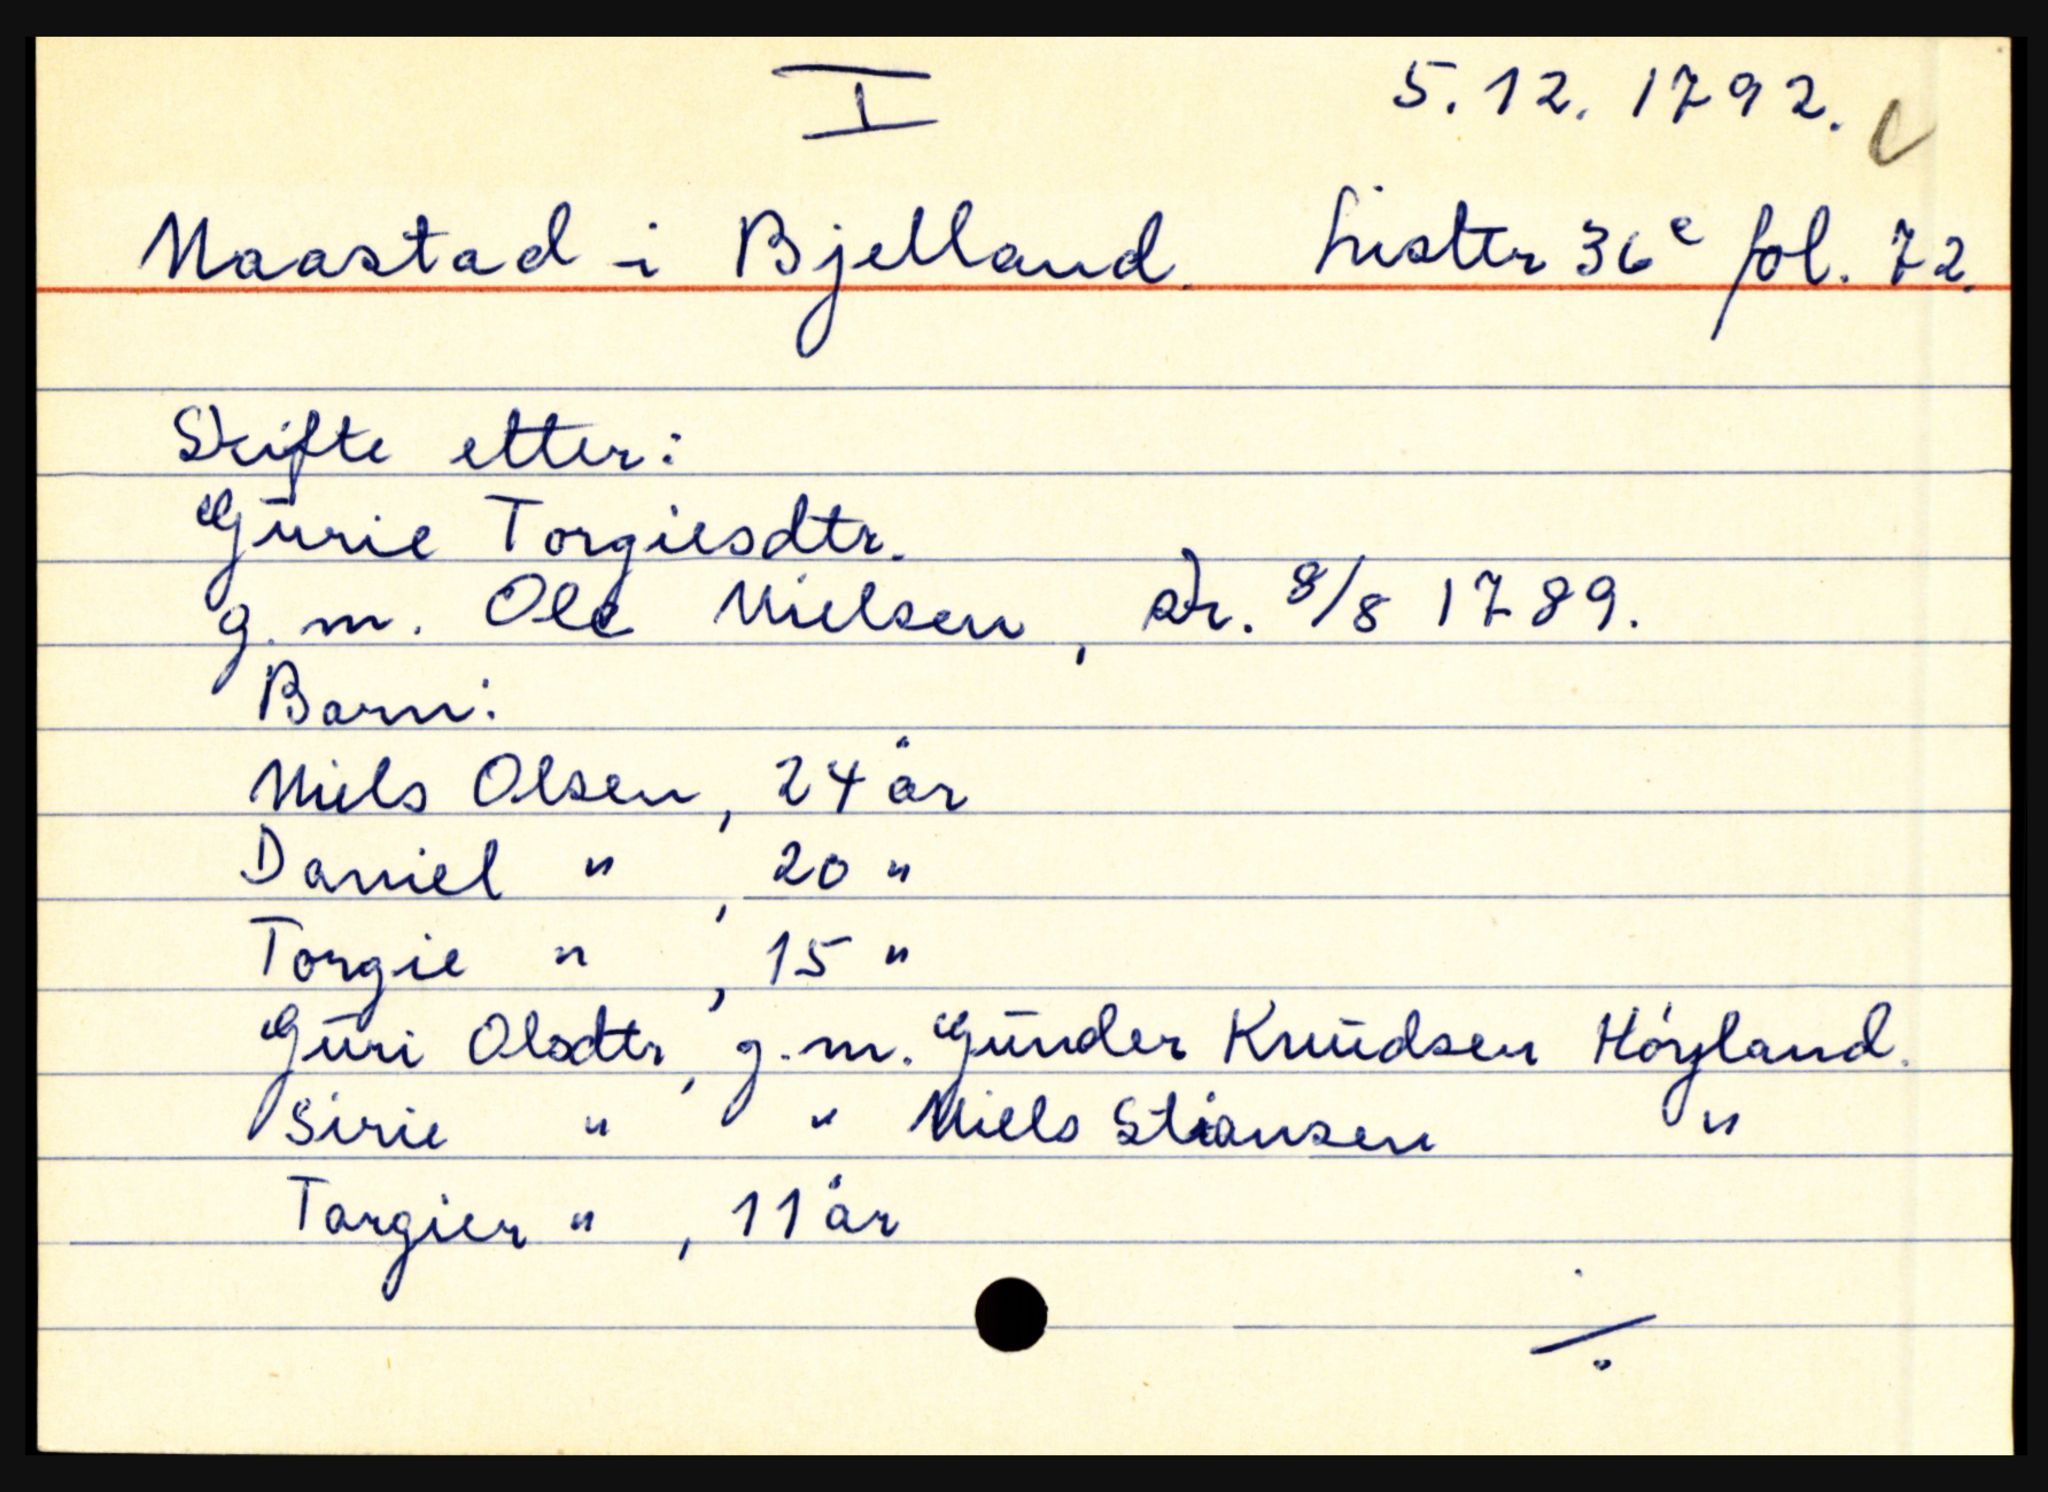 I 5.12.1792.
Maastad i Bjelland. Lister 36c fol. 72.
Skifte etter:
Gurie Torgiesdtr.
g.m. Ole Nielsen, skr. 8/8 1789.
Barn:
Niels Olsen, 24 år
Daniel ", 20 "
Torgie ", 15 "
Guri Olsdtr, g.m. Gunder Knudsen Höyland.
Sirie " " Niels Stiansen "
Targier ", 11 år